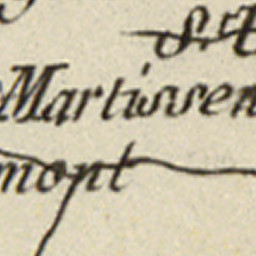 S.t
Martissen
mont